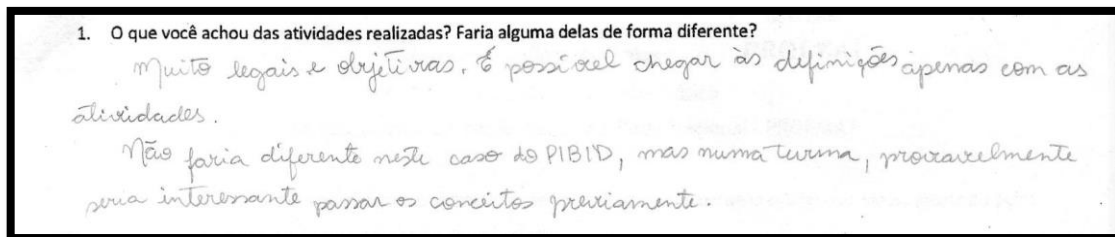 1. O que você achou das atividades realizadas? Faria alguma delas de forma diferente?
Muito legais e objetivas. É possível chegar às definições apenas com as
atividades.
Não faria diferente neste caso do PIBID, mas numa turma, provavelmente
seria interessante passar os conceitos previamente.